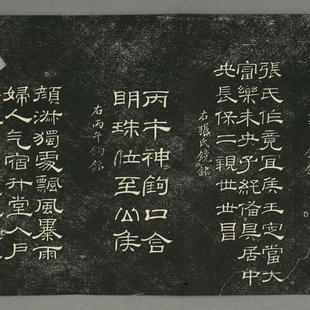 張氏作竟宜侯王家當大
富樂未央子孫備具居中
央長保二親世世昌
右張氏鏡銘
丙午神鉤口含
明珠位至公侯
右丙午鉤銘
顏淋獨處飄風暴雨
婦人乞宿升堂入戶